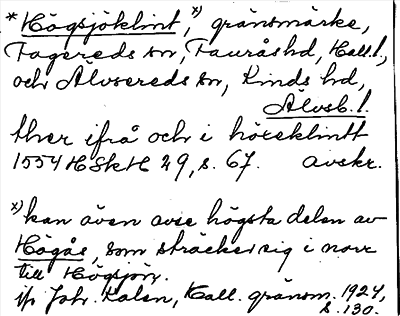 * Högsjöklint, x) gränsmärke,
Fagereds sn, Fauråshd, Hall. l.,
och Älvsereds sn, Kinds hd,
Älvsb. l.
ther ifrå och i höieklintt
1554 HSkH 29, s. 67. avskr.
x) kan även avse högsta delen av
Högås, som sträcker sig i norr
till Högsjön.
jfr Joh. Kalén, Hall. gränsm. 1924,
s. 130.